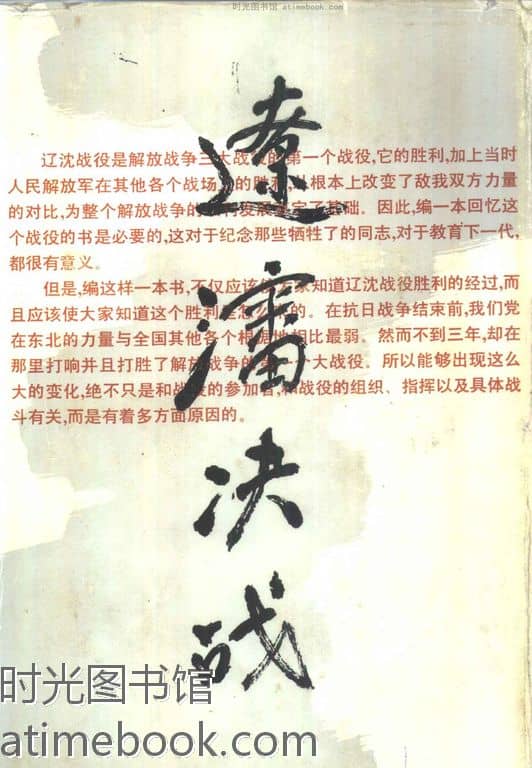 时光图书馆 atimebook.com
辽沈战役是解放战争三大战役的第一个战役,它的胜利,加上当时
人民解放军在其他各个战场 的胜利, 根本上改变了敌我双方力量
的对比,为整个解放战争的 发展奠定了基础。因此,编一本回忆这
个战役的书是必要的,这对于纪念那些牺牲了的同志,对于教育下一代,
都很有意义。
但是,编这样一本书,不仅应该使大家知道辽沈战役胜利的经过,而
且应该使大家知道这个胜利是怎么 的。在抗日战争结束前,我们党
在东北的力量与全国其他各个根据地相比最弱。然而不到三年,却在
那里打响并且打胜了解放战争的第一个大战役。所以能够出现这么
大的变化,绝不只是和战役的参加者、和战役的组织、指挥以及具体战
斗有关,而是有着多方面原因的。
遼瀋决战
时光图书馆
atimebook.com